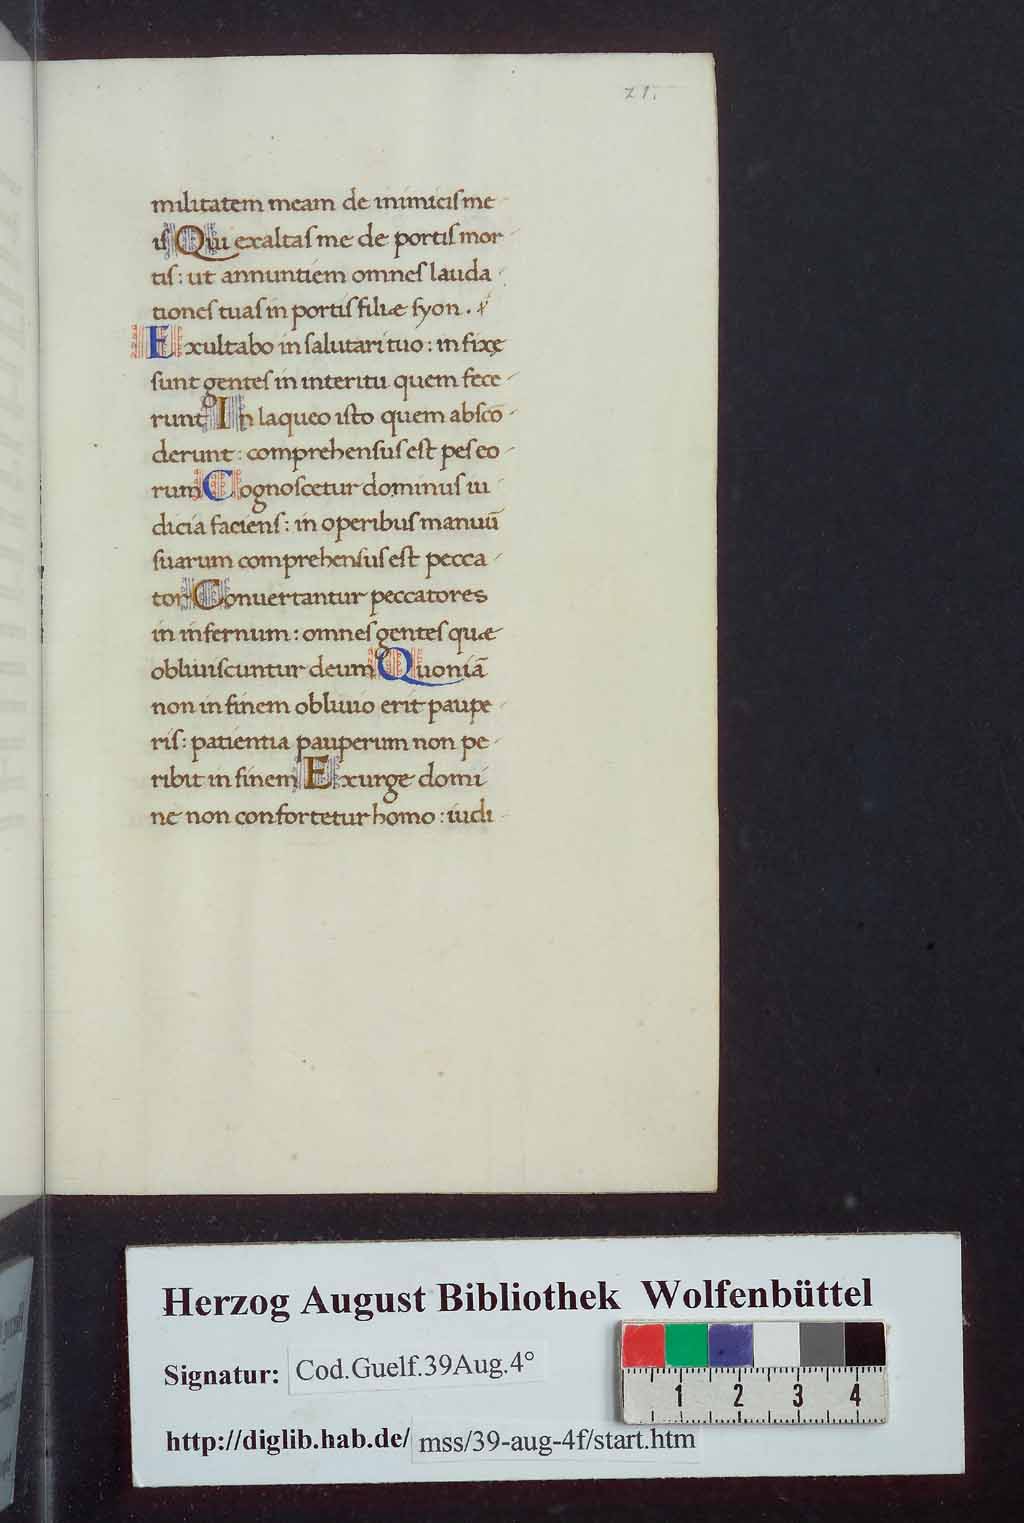 21.
militatem meam de inimicis me
is Qui exaltas me de portis mor
tis: ut annuntiem omnes lauda
tiones tuas in portis filiæ syon.
Exultabo in salutari tuo: in fixę
sunt gentes in interitu quem fece
runt In laqueo isto quem absco
derunt: comprehensus est pes eo
rum Cognoscetur dominus iu
dicia faciens: in operibus manuū
suarum comprehensus est pecca
tor Conuertantur peccatores
in infernum: omnes gentes quæ
obliuiscuntur deum Quoniā
non in finem obliuio erit paupe
ris: patientia pauperum non pe
ribit in finem Exurge domi
ne non confortetur homo: iudi
Herzog August Bibliothek Wolfenbüttel
Signatur: Cod.Guelf.39Aug.4°
1 2 3 4
http://diglib.hab.de/ mss/39-aug-4f/start.htm